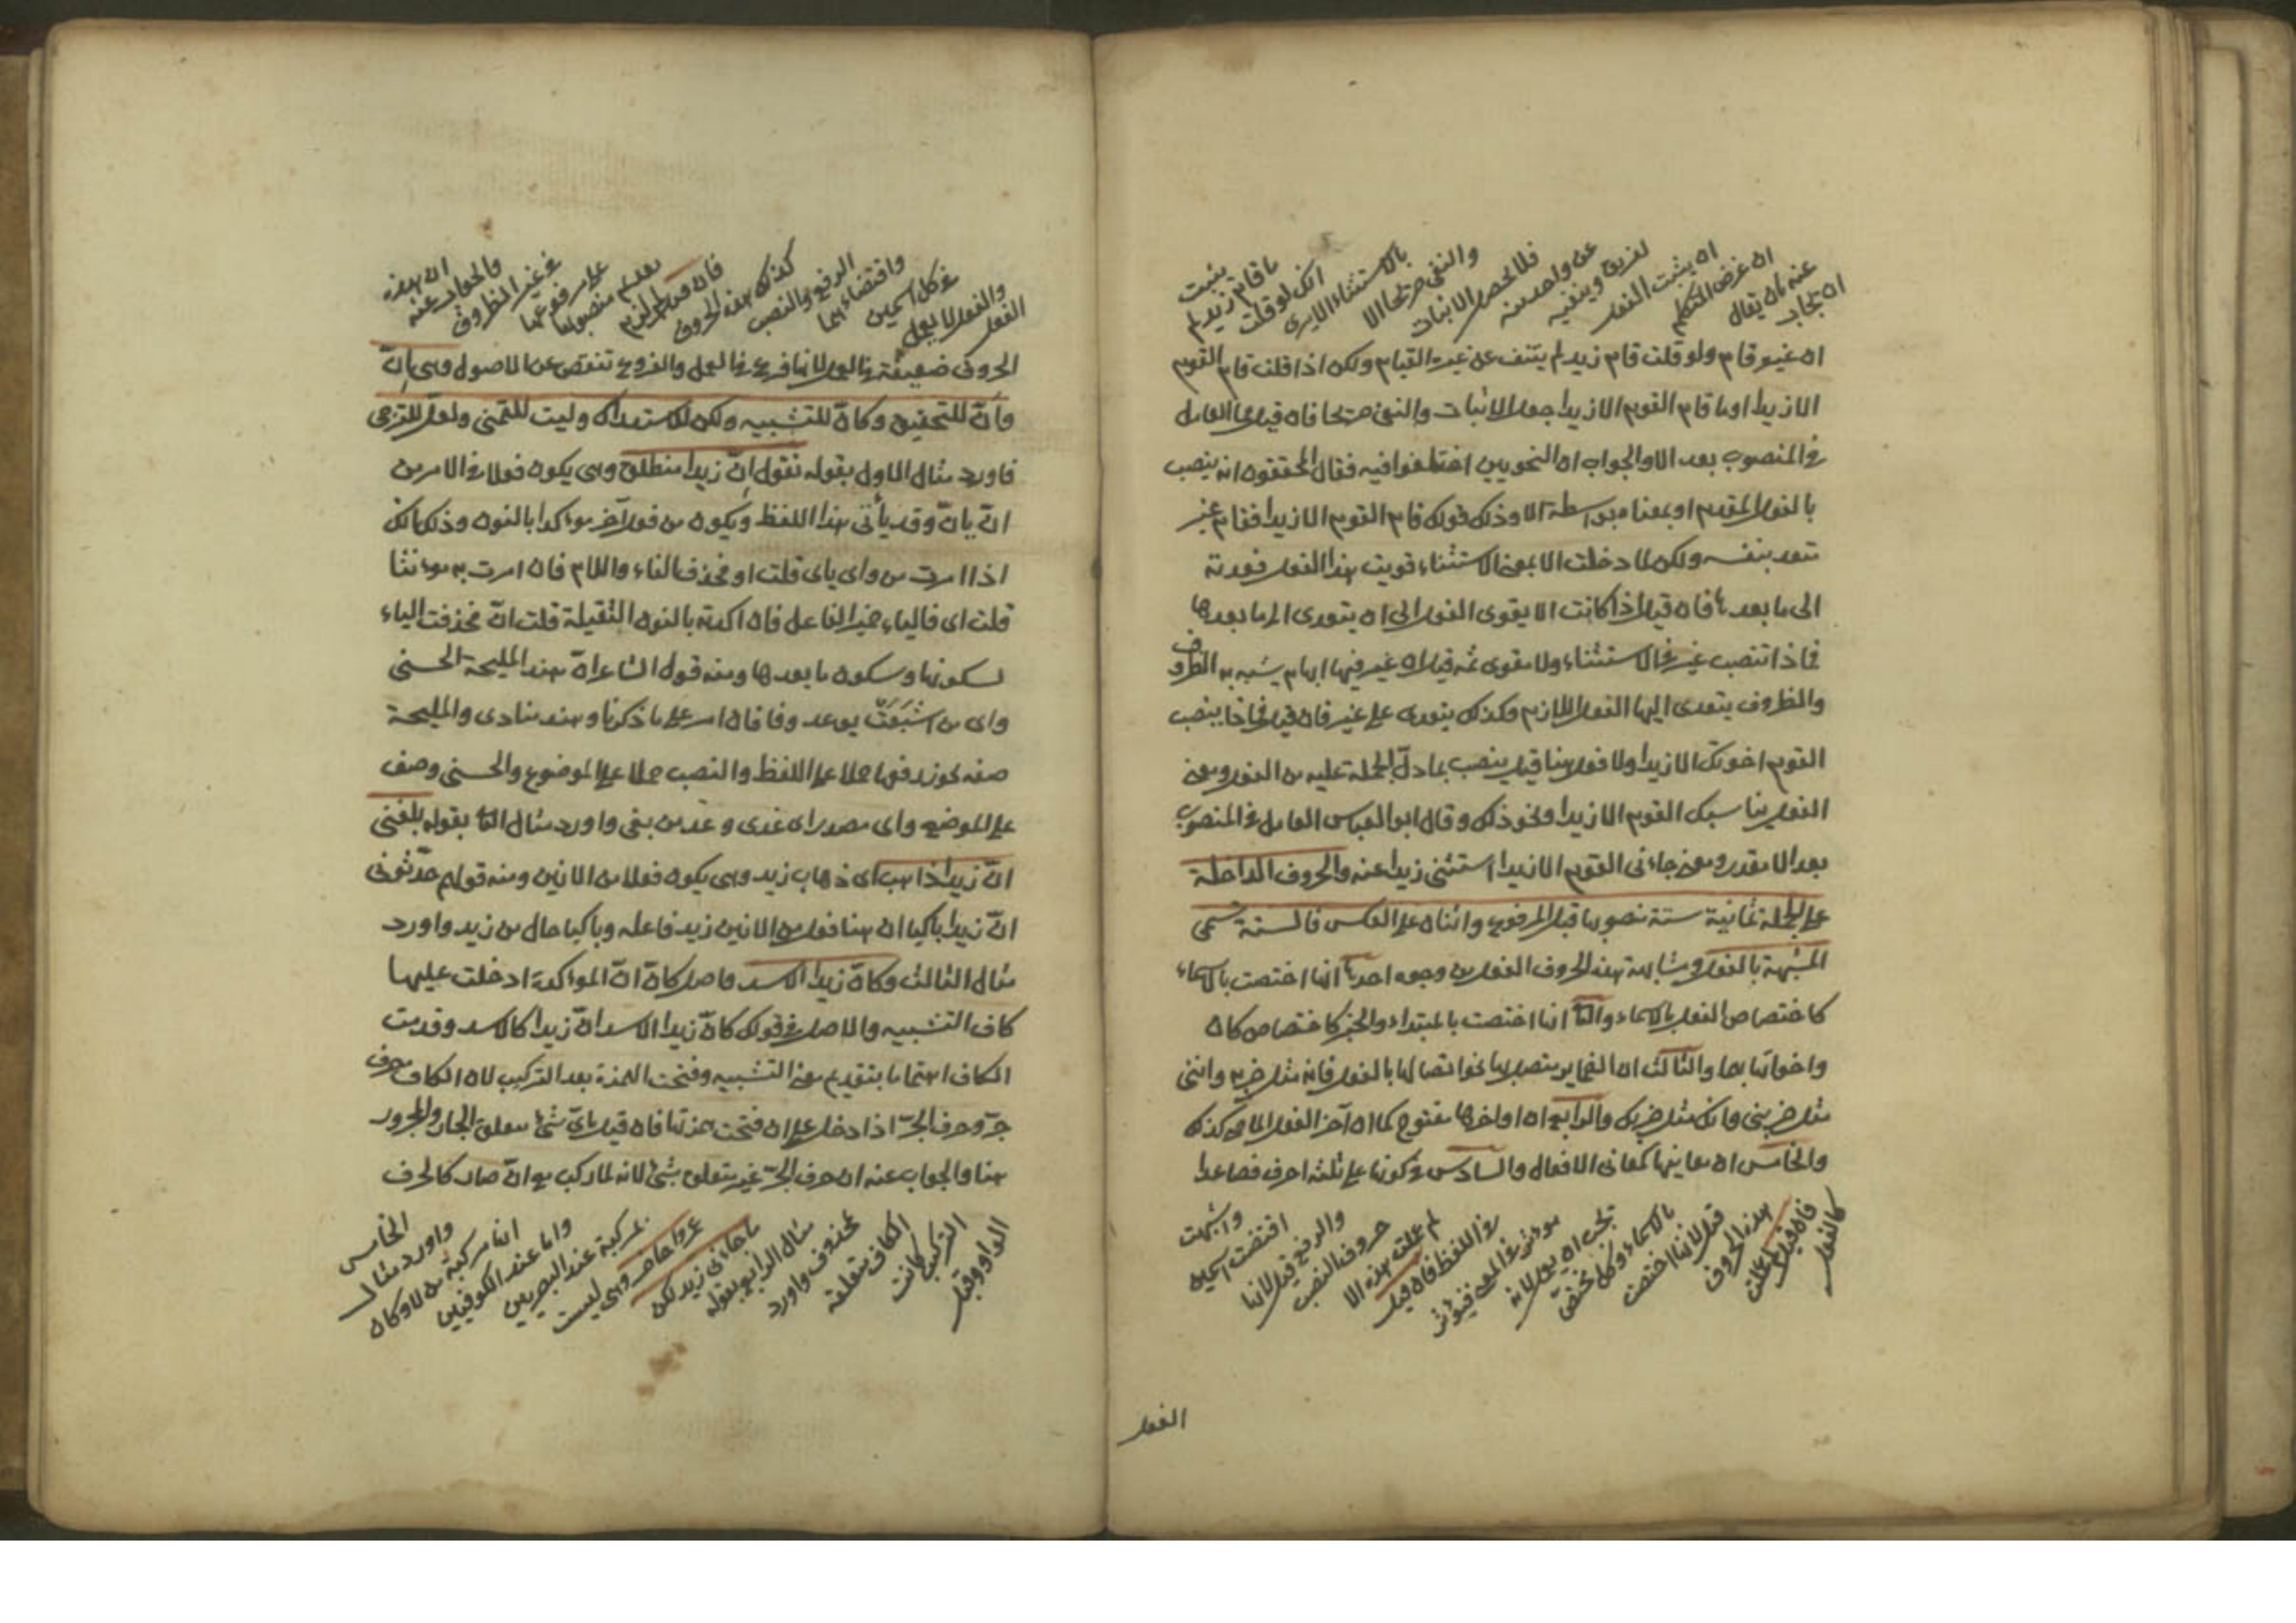 ان يجاب
عنه بان يقال
ان غرض المتكلم
ان يثبت الفعل
لفريق وينفيه
عن واحد منه
فلا يحصل الاثبات
والنفى صريحا الا
بالاستثناء الا يرى
انك لو قلت
ما قام زيد لم
يثبت
ان غيره قام ولو قلت قام زيد لم ينتف عن غيره القيام ولكن اذا قلت قام القوم
الا زيدا او ما قام القوم الا زيدا جعل الاثبات والنفى صريحا فان قيل ما العامل
فى المنصوب بعد الا والجواب ان النحويين اختلفوا فيه فقال المحققون انه ينصب
بالفعل المقدم او بمعناه بواسطة الا وذلك قولك قام القوم الا زيدا فقام غير
متعد بنفسه ولكن لما دخلت الا بمعنى الاستثناء قويت هذا الفعل فعدته
الى ما بعدها فان قيل اذا كانت الا يقوى الفعل الى ان يتعدى الى ما بعدها
فماذا تنصب غير فى الاستثناء ولا مقوى ثمه قيل ان غير فيها ابهام يشبه به الظروف
والظروف يتعدى اليها الفعل اللازم وكذلك يتعدى على غير فان قيل فماذا ينصب
القوم اخوتك الا زيدا ولا فعل هنا قيل ينصب بما دل الجملة عليه من الفعل ومعنى
الفعل يناسبك القوم الا زيدا ونحو ذلك وقال ابو العباس العامل فى المنصوب
بعد الا مقدر ومعنى جاءنى القوم الا زيدا استثنى زيدا عنه والحروف الداخلة
على الجملة ثمانية ستة منصوبها قبل المرفوع واثنان على العكس فالستة تسمى
المشبهة بالفعل ومشابهة هذه الحروف الفعل من وجوه احدها انها اختصت بالاسماء
كاختصاص الفعل بالاسماء والثانى انها اختصت بالمبتداء والخبر كاختصاص كان
واخواتها بهما والثالث ان الضماير يتصل بها نحو اتصالها بالفعل فانه مثل ضربه واننى
مثل ضربنى وانك مثل ضربك والرابع ان اواخرها مفتوح كما ان آخر الفعل الماضى كذلك
والخامس ان معانيها كمعانى الافعال والسادس فى كونها على ثلثة احرف فصاعدا
كالفعل
فان قيل لم اعملت
هذه الحروف
قيل لانها اختصت
بالاسماء وكل مختص
يجب ان يعمل لانه
موثر فى المعنى فيوثر
فى اللفظ فان قيل
لم عملت هذه الا
حروف النصب
والرفع قيل لانها
اقتضت اسمين
واشبهت
الفعل
الفعل
والفعل لا يعمل
فى كل اسمين
واقتضاءهما
الرفع والنصب
كذلك هذه الحروف
فان قيل لم لزم
تقديم منصوبها
على مرفوعها
فى غير الظروف
والجواب عنه
ان هذه
الحروف ضعيفة فى العمل لانها فرع فى العمل والفروع تنقص عن الاصول وهى إنّ
وأنّ للتحقيق وكأنّ للتشبيه ولكن للاستدراك وليت للتمنى ولعل للترجى
فاورد مثال الاول بقوله نقول انّ زيدا منطلق وهى يكون فعلا فى الامر من
انّ يانّ وقد يأتى هذا اللفظ ويكون من فعل آخر موءكدا بالنون وذلك انك
اذا امرت من واى ياى قلت او فحذف الفاء واللام فان امرت به موءنثا
قلت اى فالياء ضمير الفاعل فان اكدته بالنون الثقيلة قلت انّ فحذفت الياء
لسكونها وسكون ما بعدها ومنه قول الشاعر انّ هند المليحة الحسنى
واى من اشبعت بوعد وفا فان امر على ما ذكرنا وهند منادى والمليحة
صفة يجوز رفعها حملا على اللفظ والنصب حملا على الموضع والحسنى وصف
على الموضع واى مصدر اى عدى وعد من بنى واورد مثال الثانى بقوله بلغنى
انّ زيدا ذاهب اى ذهاب زيد وهى يكون فعلا من الانين ومنه قولهم حدثونى
انّ زيدا باكيا ان هنا فعل من الانين زيد فاعله وباكيا حال من زيد واورد
مثال الثالث وكانّ زيدا الاسد واصل كانّ انّ الموءكدة ادخلت عليها
كاف التشبيه والاصل فى قولك كانّ زيدا الاسد انّ زيدا كالاسد وقدمت
الكاف اهتماما بتقديم معنى التشبيه وفتحت الهمزة بعد التركيب لان الكاف حرف
جرّ وحرف الجرّ اذا دخل على ان فتحت همزتها فان قيل باىّ شئ معلق الجار والمجرور
هنا والجواب عنه ان حرف الجرّ غير متعلق بشئ لانه لما ركب مع انّ صار كالحرف
الواو وقبل
التركيب كانت
الكاف متعلقة
بمحذوف واورد
مثال الرابع بقوله
ما جاءنى زيد لكن
عمرو حاضر وهى ليست
بمركبة عند البصريين
واما عند الكوفيين
انها مركبة من لا وكان
واورد مثال
الخامس